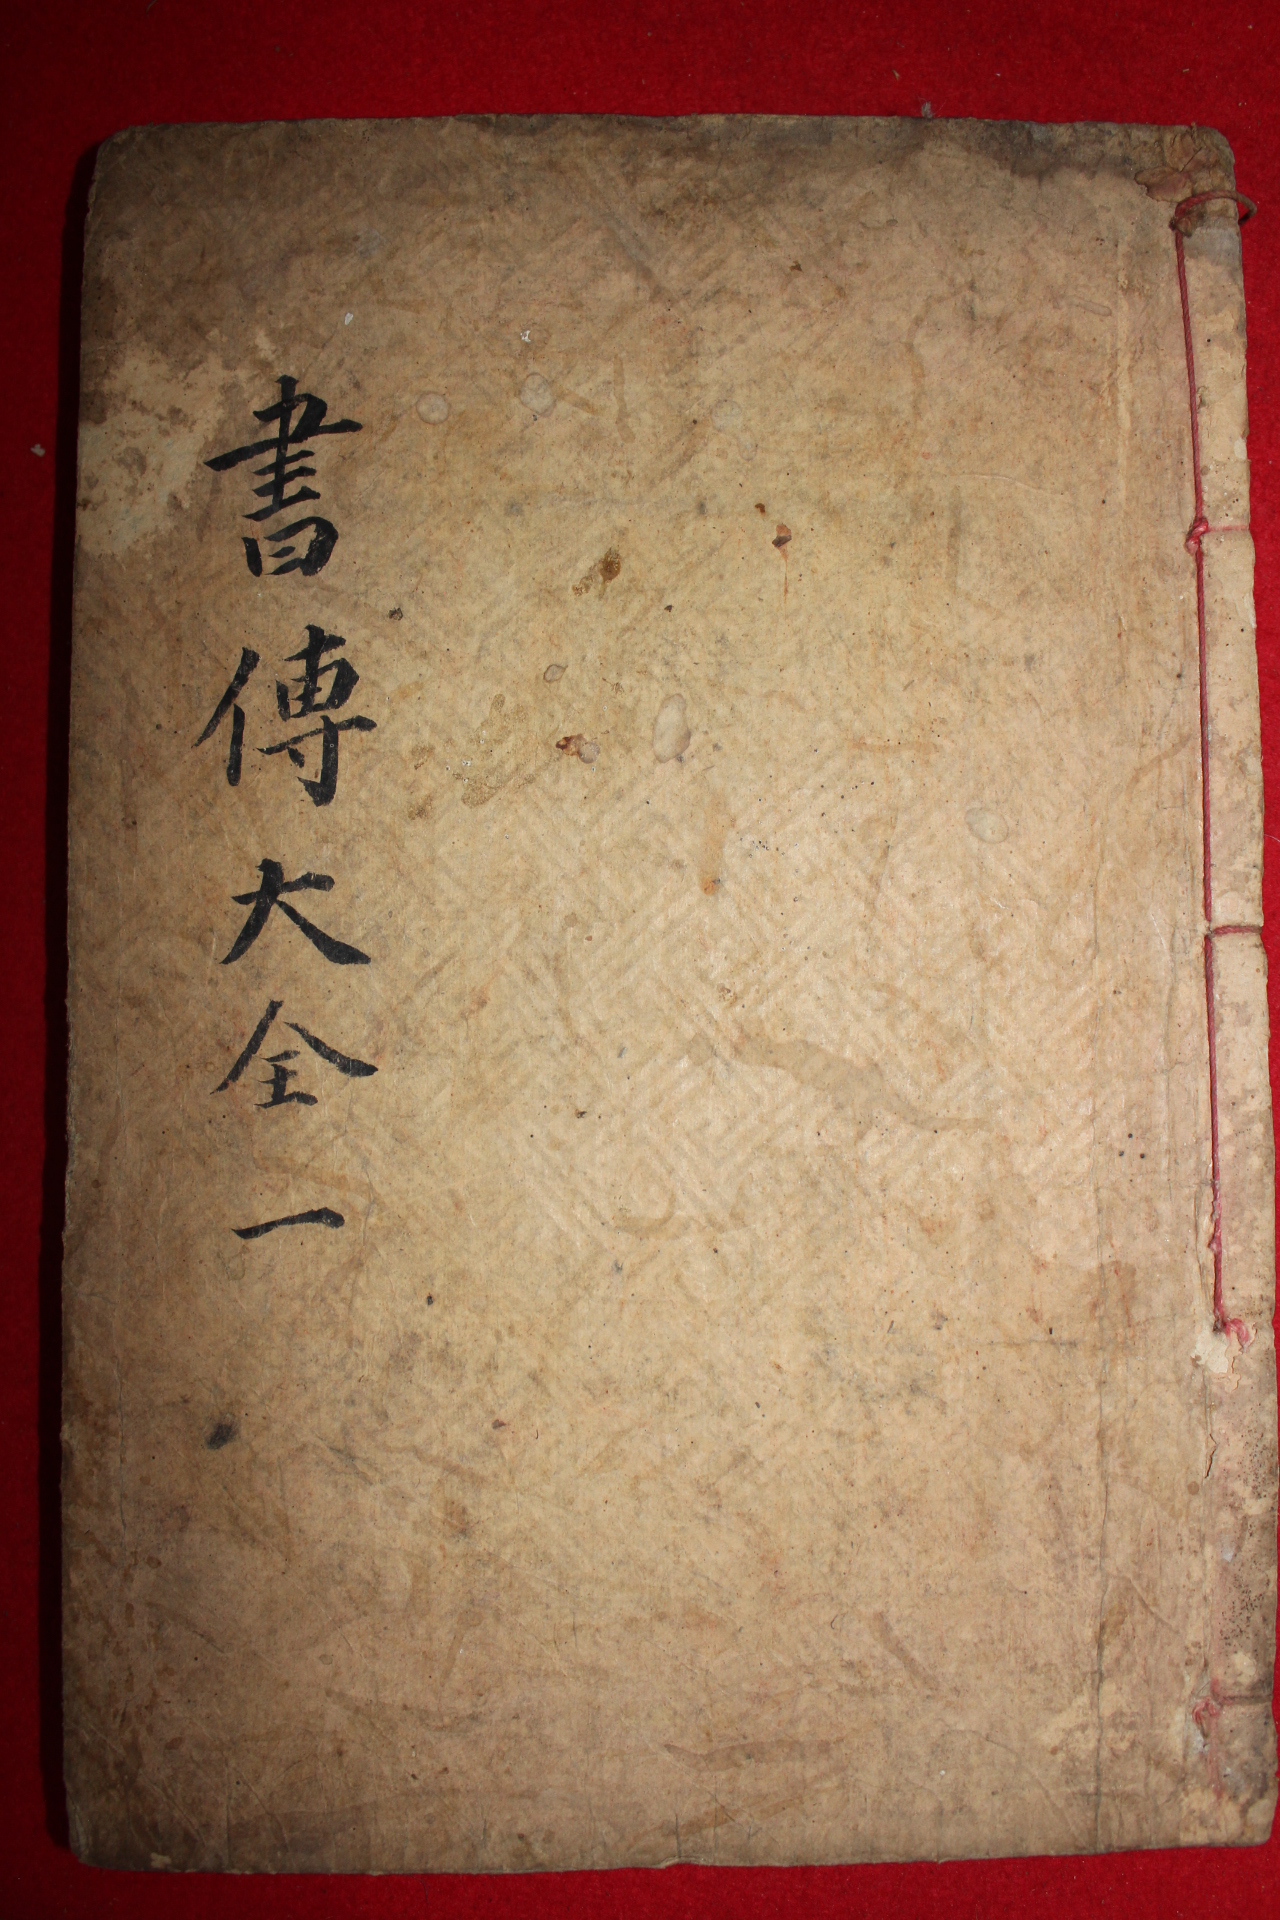 書傳大全一